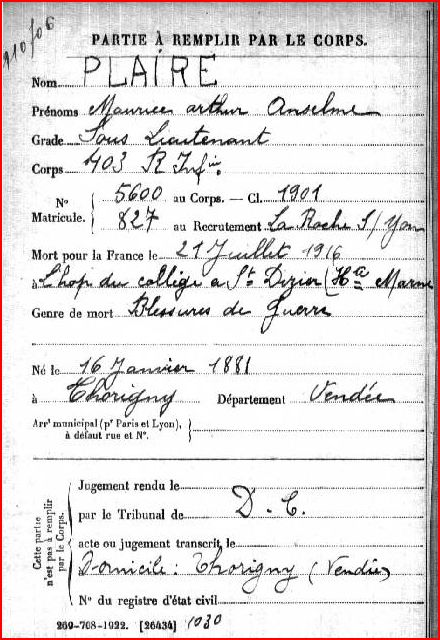 110/06
PARTIE À REMPLIR PAR LE CORPS.
Nom PLAIRE
Prénoms Maurice arthur Anselme
Grade Sous Lieutenant
Corps 403 R Infie
N° Matricule. { 5600 au Corps. — Cl. 1901
827 au Recrutement La Roche S/ Yon
Mort pour la France le 21 Juillet 1916
à L'hop du collège a St Dizier (Hte Marne
Genre de mort Blessures de Guerre
Né le 16 Janvier 1881
à Thorigny Département Vendée
Arrt municipal (pr Paris et Lyon), à défaut rue et N°.
Cette partie n'est pas à remplir par le Corps.
Jugement rendu le
par le Tribunal de D. C.
acte ou jugement transcrit le
Domicile : Thorigny (Vendée)
N° du registre d'état civil
269-708-1922. [26434] 1030